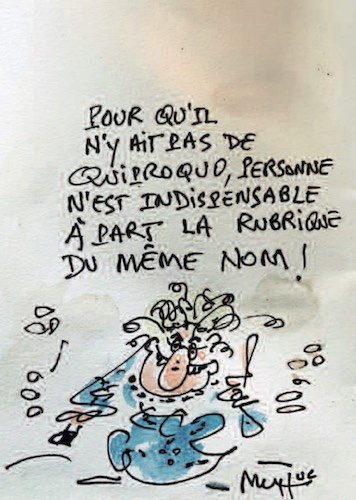 POUR QU'IL
N'Y AIT PAS DE
QUIPROQUO, PERSONNE
N'EST INDISPENSABLE
À PART LA RUBRIQUE
DU MÊME NOM !